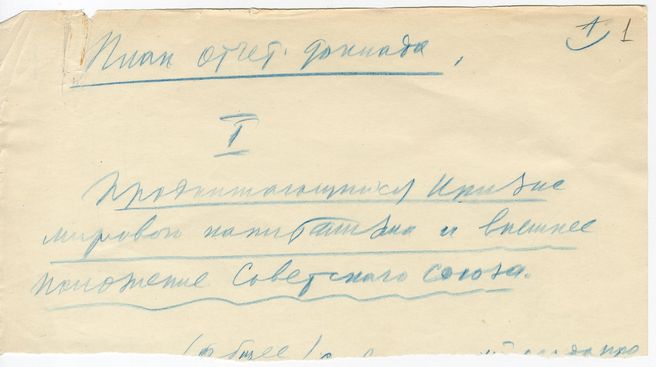 1) 1
План отчет. доклада,
I
Продолжающийся кризис
мирового капитализма и внешнее
положение Советского Союза.